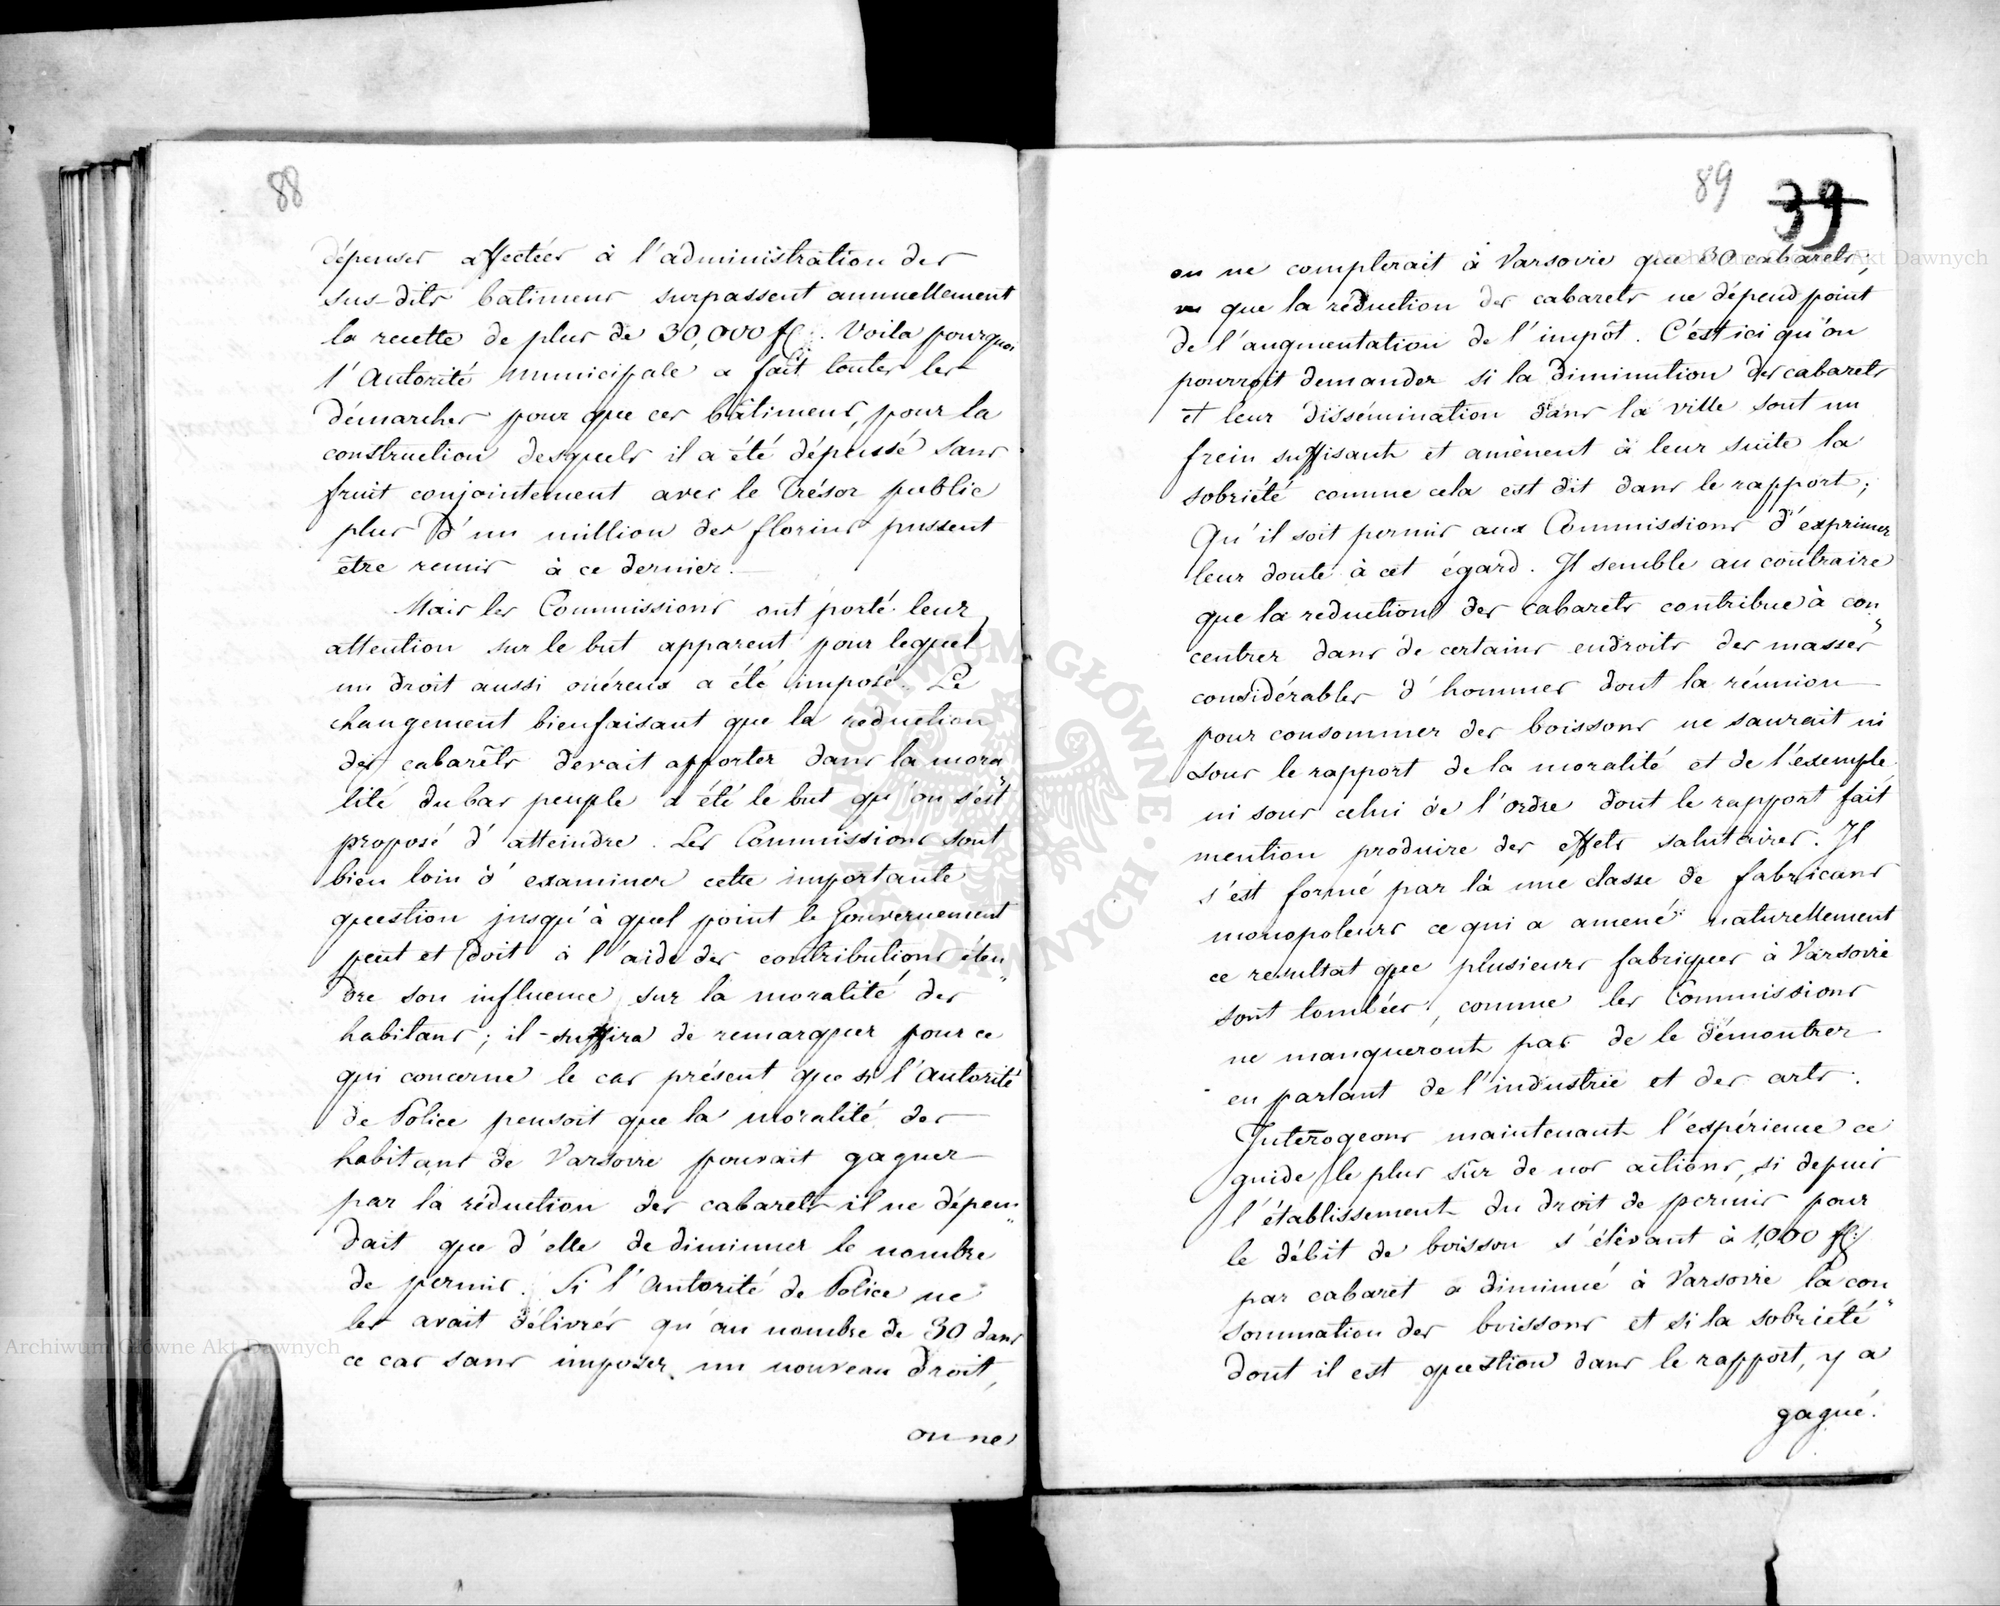 88
dépenses affectées à l'administration des
sus-dits batimens surpassent annuellement
la recette de plus de 30,000 fl: Voila pourquoi
l'Autorité Municipale a fait toutes les
démarches pour que ces bâtimens, pour la
construction desquels il a été dépensé sans
fruit conjointement avec le Trésor public
plus d'un million des florins pussent
être remis à ce dernier.
Mais les Commissions ont porté leur
attention sur le but apparent pour lequel
un droit aussi onéreux a été imposé. Le
changement bienfaisant que la reduction
des cabarêts devait apporter dans la mora„
lité du bas peuple a été le but qu'on s'est
proposé d'atteindre. Les Commissions sont
bien loin d'examiner cette importante
question jusqu'à quel point le Gouvernement
peut et doit à l'aide des contributions éten„
dre son influence sur la moralité des
habitans; il suffira de remarquer pour ce
qui concerne le cas présent que si l'Autorité
de Police pensoit que la moralité des
habitans de Varsovie pouvait gagner
par la réduction des cabarets il ne dépen„
dait que d'elle de diminuer le nombre
de permis. Si l'Autorité de Police ne
les avait délivrés qu'au nombre de 30 dans
ce cas sans imposer un nouveau droit,
on ne
89 39
on ne compterait à Varsovie que 30 cabarets;
vu que la réduction des cabarets ne dépend point
de l'augmentation de l'impôt. C'est ici qu'on
pourroit demander si la diminution des cabarets
et leur dissémination dans la ville sont un
frein suffisant et amènent à leur suite la
sobriété comme cela est dit dans le rapport;
Qu'il soit permis aux Commissions d'exprimer
leur doute à cet égard. Il semble au contraire
que la reduction des cabarets contribue à con„
centrer dans de certains endroits des masses
considérables d'hommes dont la réunion
pour consommer des boissons ne saurait ni
sous le rapport de la moralité et de l'exemple
ni sous celui de l'ordre dont le rapport fait
mention produire des effets salutaires. Il
s'est formé par là une classe de fabricans
monopoleurs ce qui a amené naturellement
ce resultat que plusieurs fabriques à Varsovie
sont tombées, comme les Commissions
ne manqueront pas de le démontrer
en parlant de l'industrie et des arts.
Interogeons maintenant l'expérience ce
guide le plus sûr de nos actions, si depuis
l'établissement du droit de permis pour
le débit de boisson s'élévant à 1,000 fl:
par cabaret a diminué à Varsovie la con„
sommation des boissons et si la sobriété
dont il est question dans le rapport, y a
gagné.
Archiwum Główne Akt Dawnych
Archiwum Główne Akt Dawnych
ARCHIWUM GŁÓWNE AKT DAWNYCH